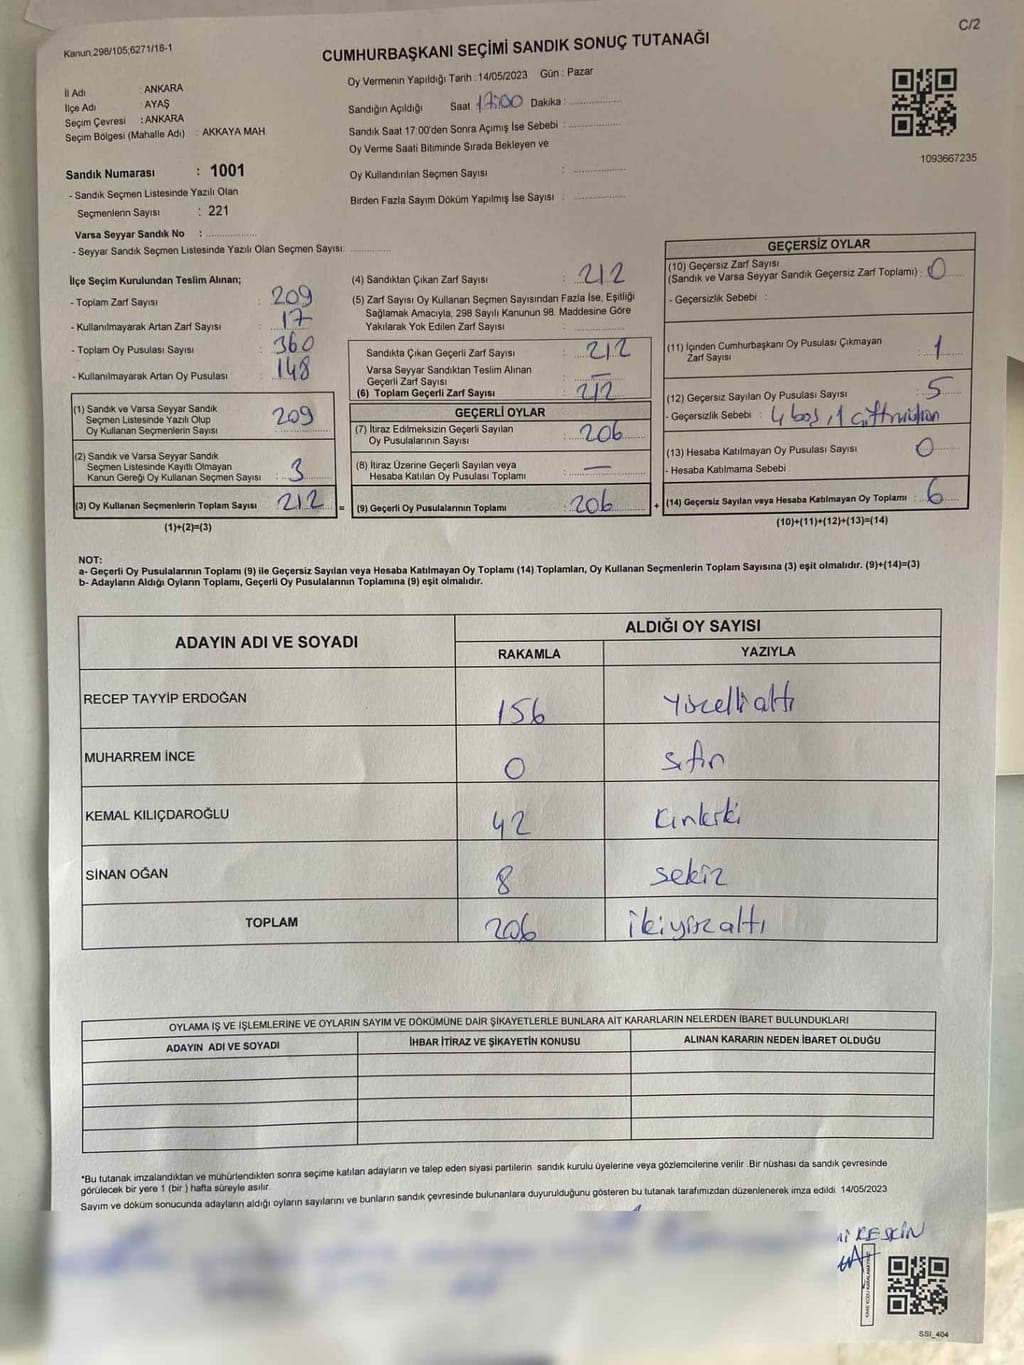 C/2
Kanun,298/105;6271/18-1
CUMHURBAŞKANI SEÇİMİ SANDIK SONUÇ TUTANAĞI
İl Adı : ANKARA
İlçe Adı : AYAŞ
Seçim Çevresi : ANKARA
Seçim Bölgesi (Mahalle Adı) : AKKAYA MAH.
Oy Vermenin Yapıldığı Tarih : 14/05/2023 Gün : Pazar
Sandığın Açıldığı Saat 17:00 Dakika :
Sandık Saat 17:00'den Sonra Açımış İse Sebebi :
Oy Verme Saati Bitiminde Sırada Bekleyen ve
Oy Kullandırılan Seçmen Sayısı :
Birden Fazla Sayım Döküm Yapılmış İse Sayısı :
1093667235
Sandık Numarası : 1001
- Sandık Seçmen Listesinde Yazılı Olan
Seçmenlerin Sayısı : 221
Varsa Seyyar Sandık No :
- Seyyar Sandık Seçmen Listesinde Yazılı Olan Seçmen Sayısı:
İlçe Seçim Kurulundan Teslim Alınan;
- Toplam Zarf Sayısı : 209
- Kullanılmayarak Artan Zarf Sayısı : 17
- Toplam Oy Pusulası Sayısı : 360
- Kullanılmayarak Artan Oy Pusulası : 148
(1) Sandık ve Varsa Seyyar Sandık
Seçmen Listesinde Yazılı Olup
Oy Kullanan Seçmenlerin Sayısı : 209
(2) Sandık ve Varsa Seyyar Sandık
Seçmen Listesinde Kayıtlı Olmayan
Kanun Gereği Oy Kullanan Seçmen Sayısı : 3
(3) Oy Kullanan Seçmenlerin Toplam Sayısı : 212 =
(1)+(2)=(3)
(4) Sandıktan Çıkan Zarf Sayısı : 212
(5) Zarf Sayısı Oy Kullanan Seçmen Sayısından Fazla İse, Eşitliği
Sağlamak Amacıyla, 298 Sayılı Kanunun 98. Maddesine Göre
Yakılarak Yok Edilen Zarf Sayısı :
Sandıkta Çıkan Geçerli Zarf Sayısı : 212
Varsa Seyyar Sandıktan Teslim Alınan
Geçerli Zarf Sayısı : —
(6) Toplam Geçerli Zarf Sayısı : 212
GEÇERLİ OYLAR
(7) İtiraz Edilmeksizin Geçerli Sayılan
Oy Pusulalarının Sayısı : 206
(8) İtiraz Üzerine Geçerli Sayılan veya
Hesaba Katılan Oy Pusulası Toplamı : —
(9) Geçerli Oy Pusulalarının Toplamı : 206 +
GEÇERSİZ OYLAR
(10) Geçersiz Zarf Sayısı
(Sandık ve Varsa Seyyar Sandık Geçersiz Zarf Toplamı) : 0
- Geçersizlik Sebebi :
(11) İçinden Cumhurbaşkanı Oy Pusulası Çıkmayan
Zarf Sayısı : 1
(12) Geçersiz Sayılan Oy Pusulası Sayısı : 5
- Geçersizlik Sebebi : 4 boş, 1 çift mühür
(13) Hesaba Katılmayan Oy Pusulası Sayısı : 0
- Hesaba Katılmama Sebebi
(14) Geçersiz Sayılan veya Hesaba Katılmayan Oy Toplamı : 6
(10)+(11)+(12)+(13)=(14)
NOT:
a- Geçerli Oy Pusulalarının Toplamı (9) ile Geçersiz Sayılan veya Hesaba Katılmayan Oy Toplamı (14) Toplamları, Oy Kullanan Seçmenlerin Toplam Sayısına (3) eşit olmalıdır. (9)+(14)=(3)
b- Adayların Aldığı Oyların Toplamı, Geçerli Oy Pusulalarının Toplamına (9) eşit olmalıdır.
ADAYIN ADI VE SOYADI
ALDIĞI OY SAYISI
RAKAMLA YAZIYLA
RECEP TAYYİP ERDOĞAN 156 Yüzellialtı
MUHARREM İNCE 0 sıfır
KEMAL KILIÇDAROĞLU 42 Kırkiki
SİNAN OĞAN 8 sekiz
TOPLAM 206 ikiyüzaltı
OYLAMA İŞ VE İŞLEMLERİNE VE OYLARIN SAYIM VE DÖKÜMÜNE DAİR ŞİKAYETLERLE BUNLARA AİT KARARLARIN NELERDEN İBARET BULUNDUKLARI
ADAYIN ADI VE SOYADI İHBAR İTİRAZ VE ŞİKAYETİN KONUSU ALINAN KARARIN NEDEN İBARET OLDUĞU
*Bu tutanak imzalandıktan ve mühürlendikten sonra seçime katılan adayların ve talep eden siyasi partilerin sandık kurulu üyelerine veya gözlemcilerine verilir. Bir nüshası da sandık çevresinde
görülecek bir yere 1 (bir ) hafta süreyle asılır.
Sayım ve döküm sonucunda adayların aldığı oyların sayılarını ve bunların sandık çevresinde bulunanlara duyurulduğunu gösteren bu tutanak tarafımızdan düzenlenerek imza edildi. 14/05/2023
KESKİN
SSI_404